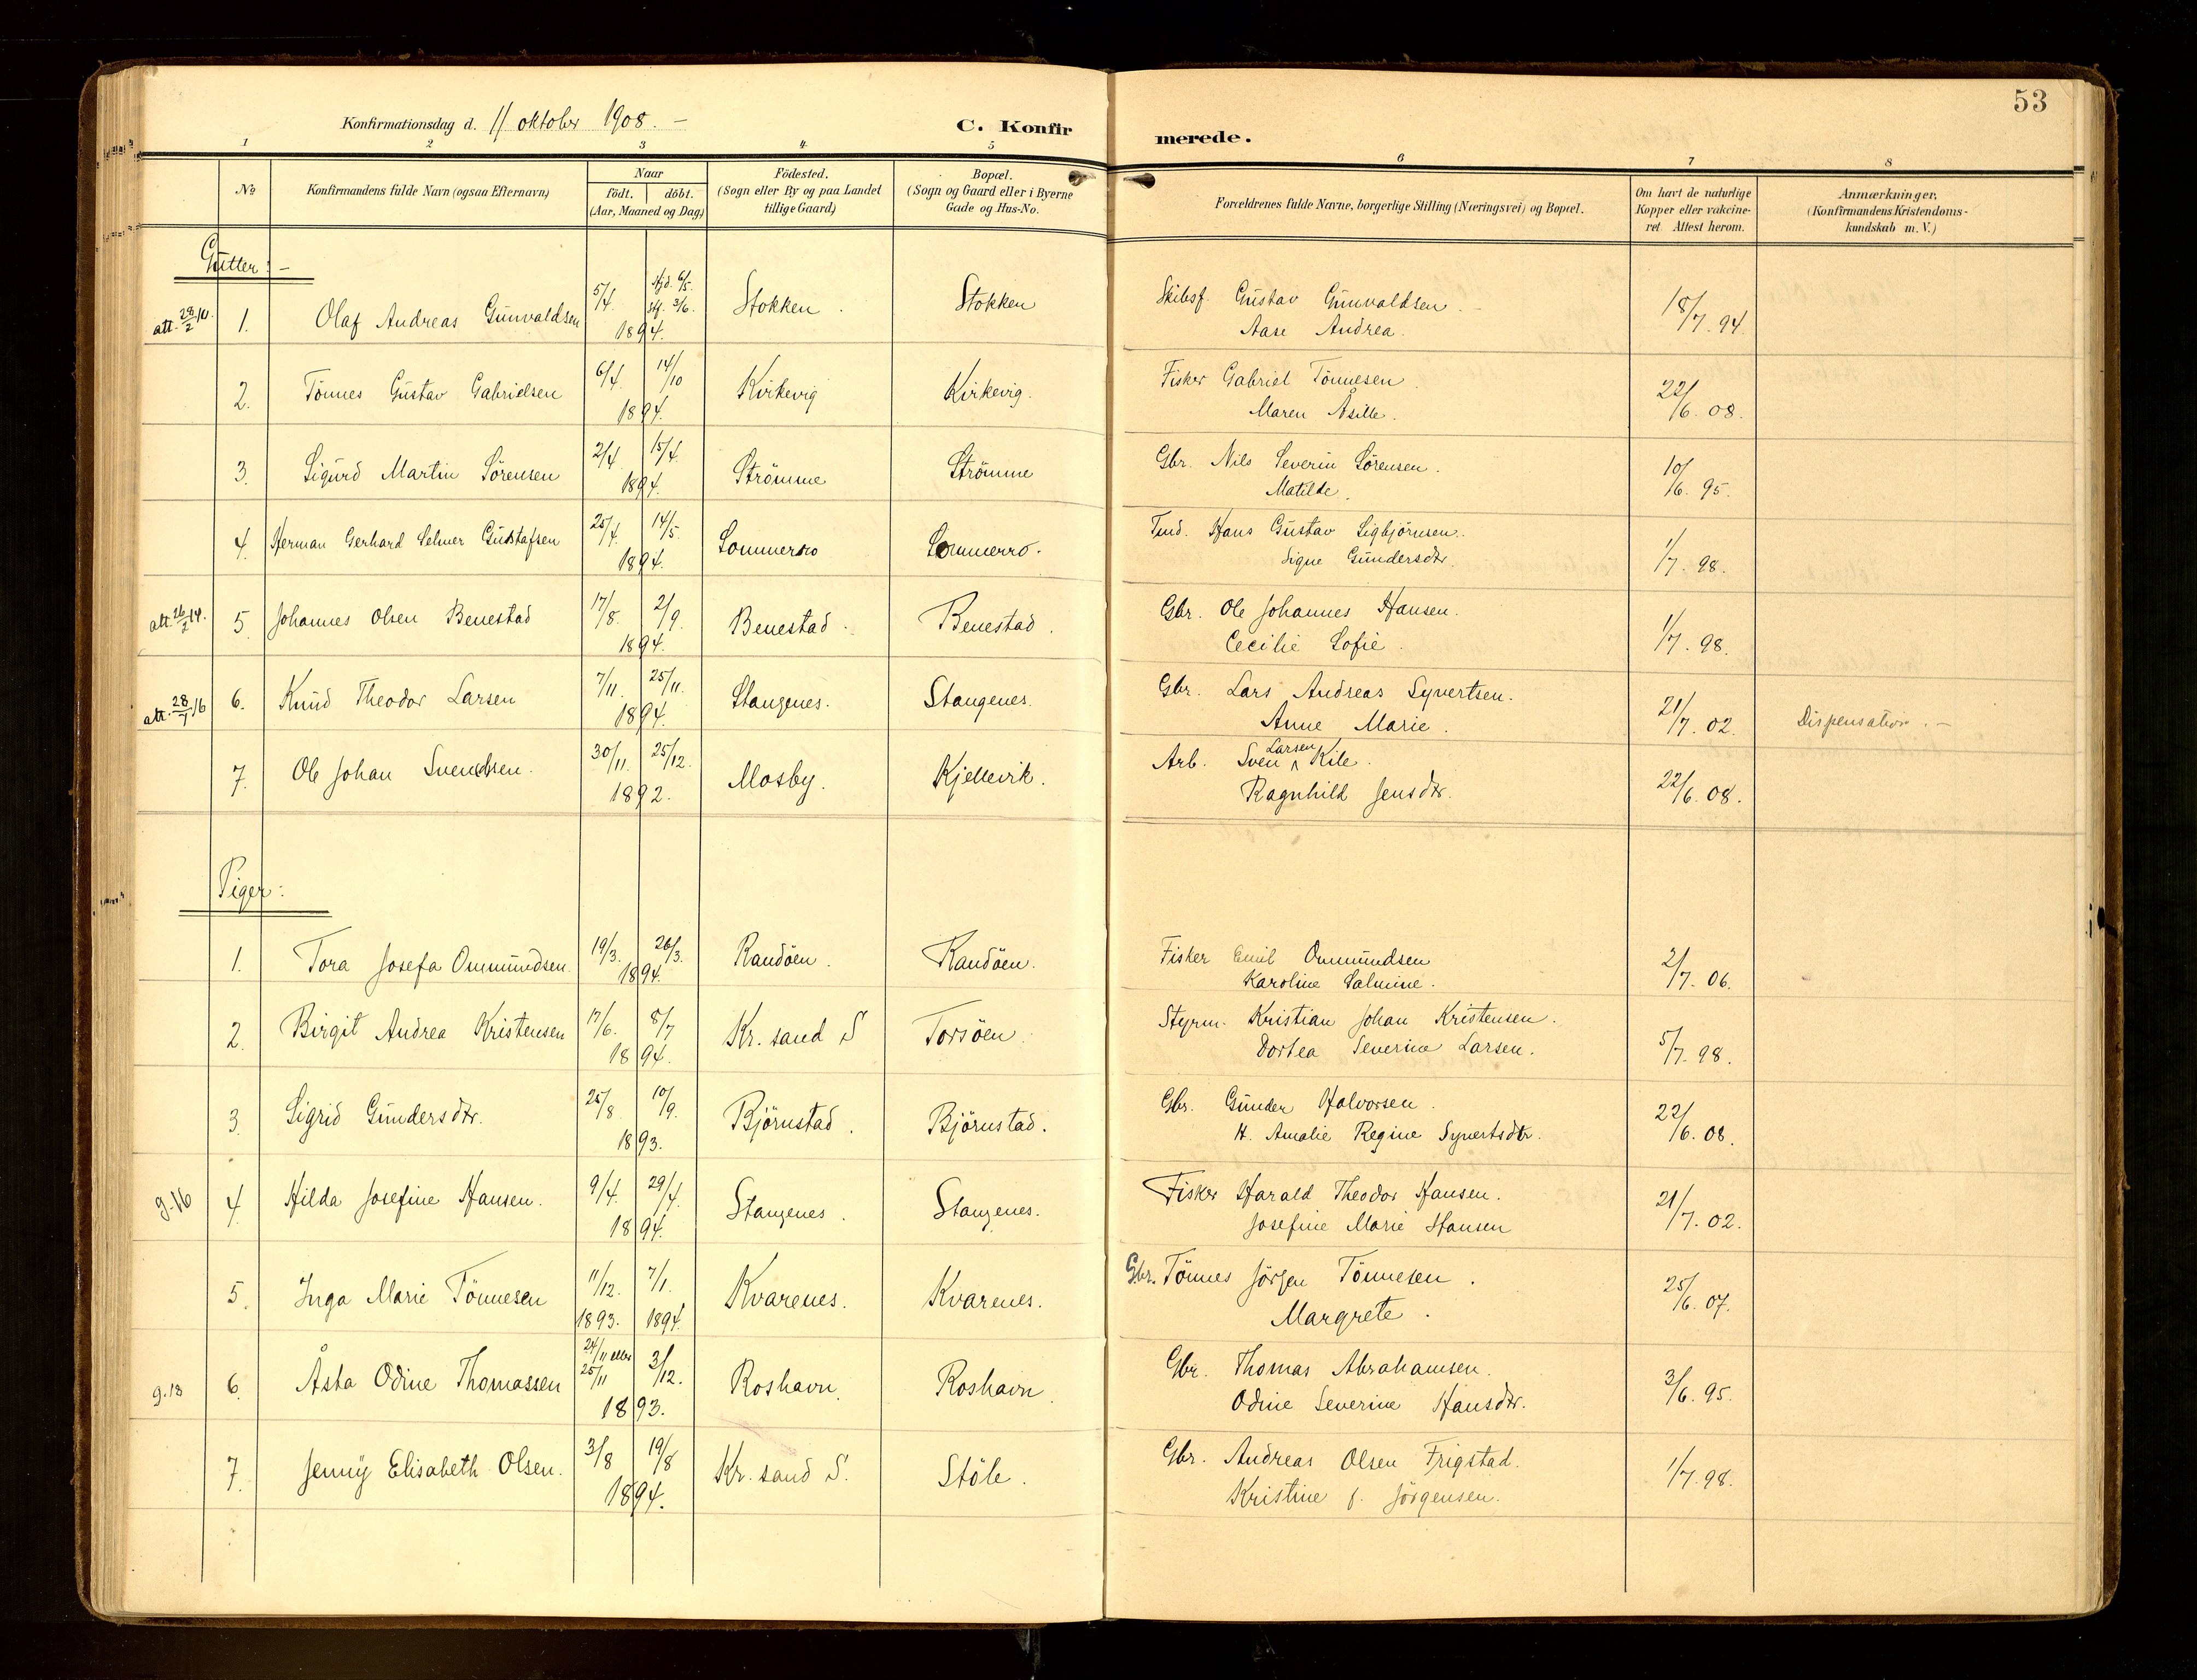 53
Konfirmationsdag d. 11 oktober 1908. –
C. Konfirmerede.
1 2 3 4 5 6 7 8
No
Konfirmandens fulde Navn (ogsaa Efternavn)
Naar
födt. döbt.
(Aar, Maaned og Dag)
Födested.
(Sogn eller By og paa Landet
tillige Gaard)
Bopæl.
(Sogn og Gaard eller i Byerne
Gade og Hus-No.
Forældrenes fulde Navne, borgerlige Stilling (Næringsvei) og Bopæl.
Om havt de naturlige
Kopper eller vakcine-
ret. Attest herom.
Anmærkninger,
(Konfirmandens Kristendoms-
kundskab m. V.)
Gutter: –
att. 28/2 10. 1. Olaf Andreas Gunvaldsen 5/4. hjd. 6/5. stf. 3/6. 1894. Stokken. Stokken Skibsf. Gustav Gunvaldsen.
Aase Andrea. 18/7. 94.
2. Tönnes Gustav Gabrielsen 6/4. 14/10 1894. Kirkevig Kirkevig. Fisker Gabriel Tönnesen.
Maren Åsille. 22/6. 08.
3. Sigurd Martin Sörensen 2/4. 15/4. 1894. Strömme Strömme Gbr. Nils Severin Sörensen.
Matilde. 10/6. 95.
4. Herman Gerhard Selmer Gustafsen 25/4. 14/5. 1894. Sommerro Sommerro. Tmd. Hans Gustav Sigbjörnsen.
Signe Gundersdtr. 1/7. 98.
att. 26/2 14. 5. Johannes Olsen Benestad 17/8. 2/9. 1894. Benestad. Benestad. Gbr. Ole Johannes Hansen.
Cecilie Sofie. 1/7. 98.
att. 28/1 16 6. Knud Theodor Larsen 7/11. 25/11. 1894. Stangenes. Stangenes. Gbr. Lars Andreas Syvertsen.
Anne Marie. 21/7. 02. Dispensation. –
7. Ole Johan Svendsen. 30/11. 25/12. 1892. Mosby. Kjellevik. Arb. Sven Larsen Kile.
Ragnhild Jensdtr. 22/6. 08.
Piger:
1. Tora Josefa Ommundsen. 19/3. 26/3. 1894. Randöen. Randöen. Fisker Emil Ommundsen
Karoline Salmine. 2/7. 06.
2. Birgit Andrea Kristensen 17/6. 8/7 1894. Kr. sand S Torsöen. Styrm. Kristian Johan Kristensen.
Dortea Severine Larsen. 5/7. 98.
3. Sigrid Gundersdtr. 25/8. 10/9. 1893. Björnstad. Björnstad. Gbr. Gunder Halvorsen.
H. Amalie Regine Syvertsdtr. 22/6. 08.
g. 16 4. Hilda Josefine Hansen. 9/4. 29/4. 1894. Stangenes. Stangenes. Fisker Harald Theodor Hansen.
Josefine Marie Hansen 21/7. 02.
5. Inga Marie Tönnesen 11/12. 1893. 7/1. 1894. Kvarenes. Kvarenes. Gbr. Tönnes Jörgen Tönnesen.
Margrete. 25/6. 07.
g. 18 6. Åsta Odine Thomassen 24/11 eller 25/11 3/12. 1893. Roshavn. Roshavn. Gbr. Thomas Abrahamsen.
Odine Severine Hansdtr. 3/6. 95.
7. Jenny Elisabeth Olsen. 3/8 19/8 1894. Kr. sand S. Stöle. Gbr. Andreas Olsen Frigstad.
Kristine f. Jörgensen. 1/7. 98.